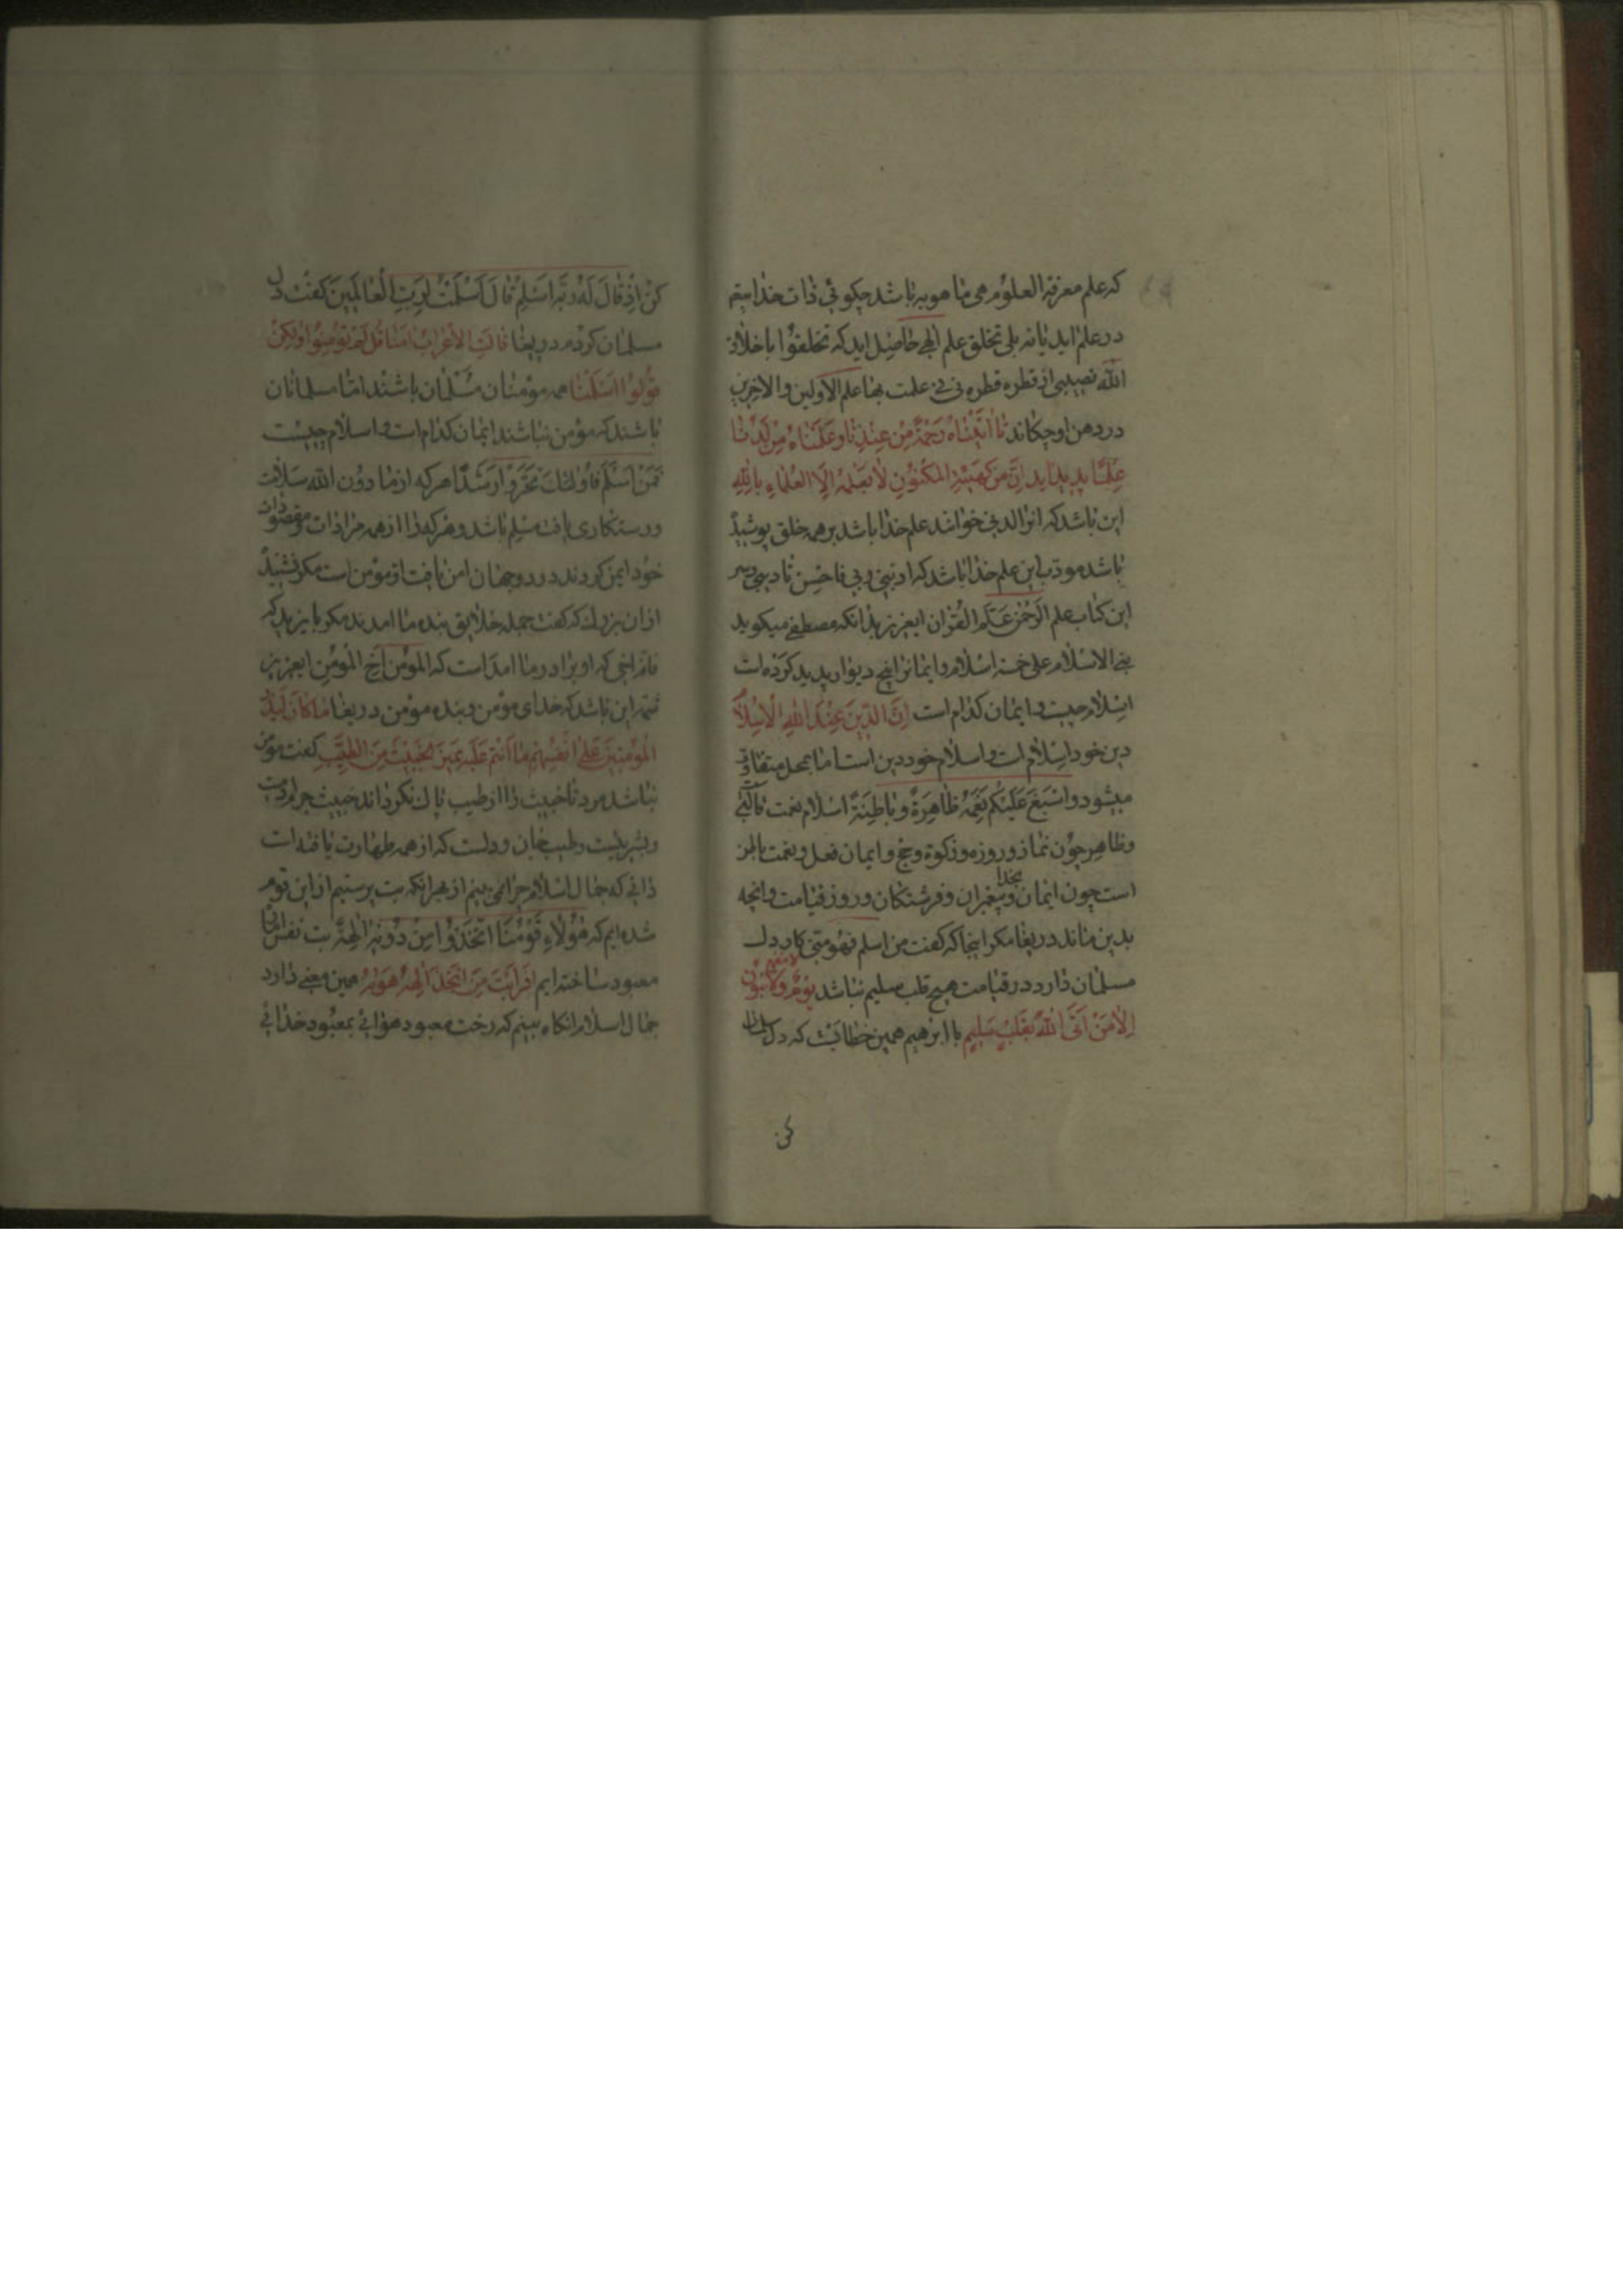 که علم معرفة العلوم هی ما هو به باشد چکوئی ذات خدایتعا
در علم اید یا نه بلی تخلق علم الهی حاصل اید که تخلقوا باخلاق
الله نصیبی از قطره قطره فی فی علمت بها علم الاولین والاخرین
در دهن او چکاند تا اتیناه رحمة من عندنا وعلمناه من لدنا
علما پدید اید ان من کهیئة المکنون لا یعلمه الا العلماء بالله
این باشد که انرا لدنی خوانند علم خدا باشد بر همه خلق پوشیده
باشد مودب این علم خدا باشد که ادبنی ربی فاحسن تادیبی
این کتاب علم الرحمن علم القران ایعزیز بدانکه مصطفی میکوید
بنی الاسلام علی خمسة اسلام وایمانرا پنج دیوار پدید کرده است
اسلام چیست وایمان کدام است ان الدین عند الله الاسلام
دین خود اسلام است واسلام خود دین است اما بمحل متفاوت
میشود واسبغ علیکم نعمه ظاهرة وباطنة اسلام نعمت
وظاهر چون نماز وروزه وزکوة وحج وایمان فعل ونعمت باطن
است چون ایمان بخدا وپیغمبران وفرشتکان وروز قیامت وانچه
بدین ماند دریغا مکر اینجا که کفت من اسلم فهو منی کار دل
مسلمان دارد در قیامت هیچ قلب سلیم نباشد یوم لا ینفع مال ولا بنون
الا من اتی الله بقلب سلیم با ابرهیم همین خطابست که دل سلما
کن
کن اذ قال له ربه اسلم قال اسلمت لرب العالمین کفت دل
مسلمان کردم دریغا قالت الاعراب امنا قل لم تومنوا ولکن
قولوا اسلمنا همه مومنان مسلمان باشند اما مسلمانان
باشند که مومن نباشند ایمان کدام است واسلام چیست
فمن اسلم فاولئک تحروا رشدا هر که از ما دون الله سلامت
ورستکاری یافت مسلم باشد وهر که خدا از همه مرادات ومقصودات
خود ایمن کردند در دو جهان امن یافت او مومن است مکر نشنید
از ان بزرک که کفت جمله خلایق بنده ما امدند مکر بایزید که
فانه اخی که او برادر ما امد است که المومن اخ المومن ایعزیز
تتمه این باشد که خدای مومن وبنده مومن دریغا ما کان لیذر
المومنین علی انفسهم ما انتم علیه یمیز الخبیث من الطیب کفت مومن
نباشد مرد تا خبیث را از طیب پاک نکرداند خبیث چه امدست
وبشریت وطیب جان ودلست که از همه طهارت یافته است
دانی که جمال اسلام چرا نمی بینم از بهر انکه بت پرستیم از این قوم
شده ایم که هؤلاء قومنا اتخذوا من دونه الهة بت نفس اماره را
معبود ساخته ایم افرایت من اتخذ الهه هویه همین معنی دارد
جمال اسلام انکاه بینم که رخت معبود هوائی بمعبود خدائی